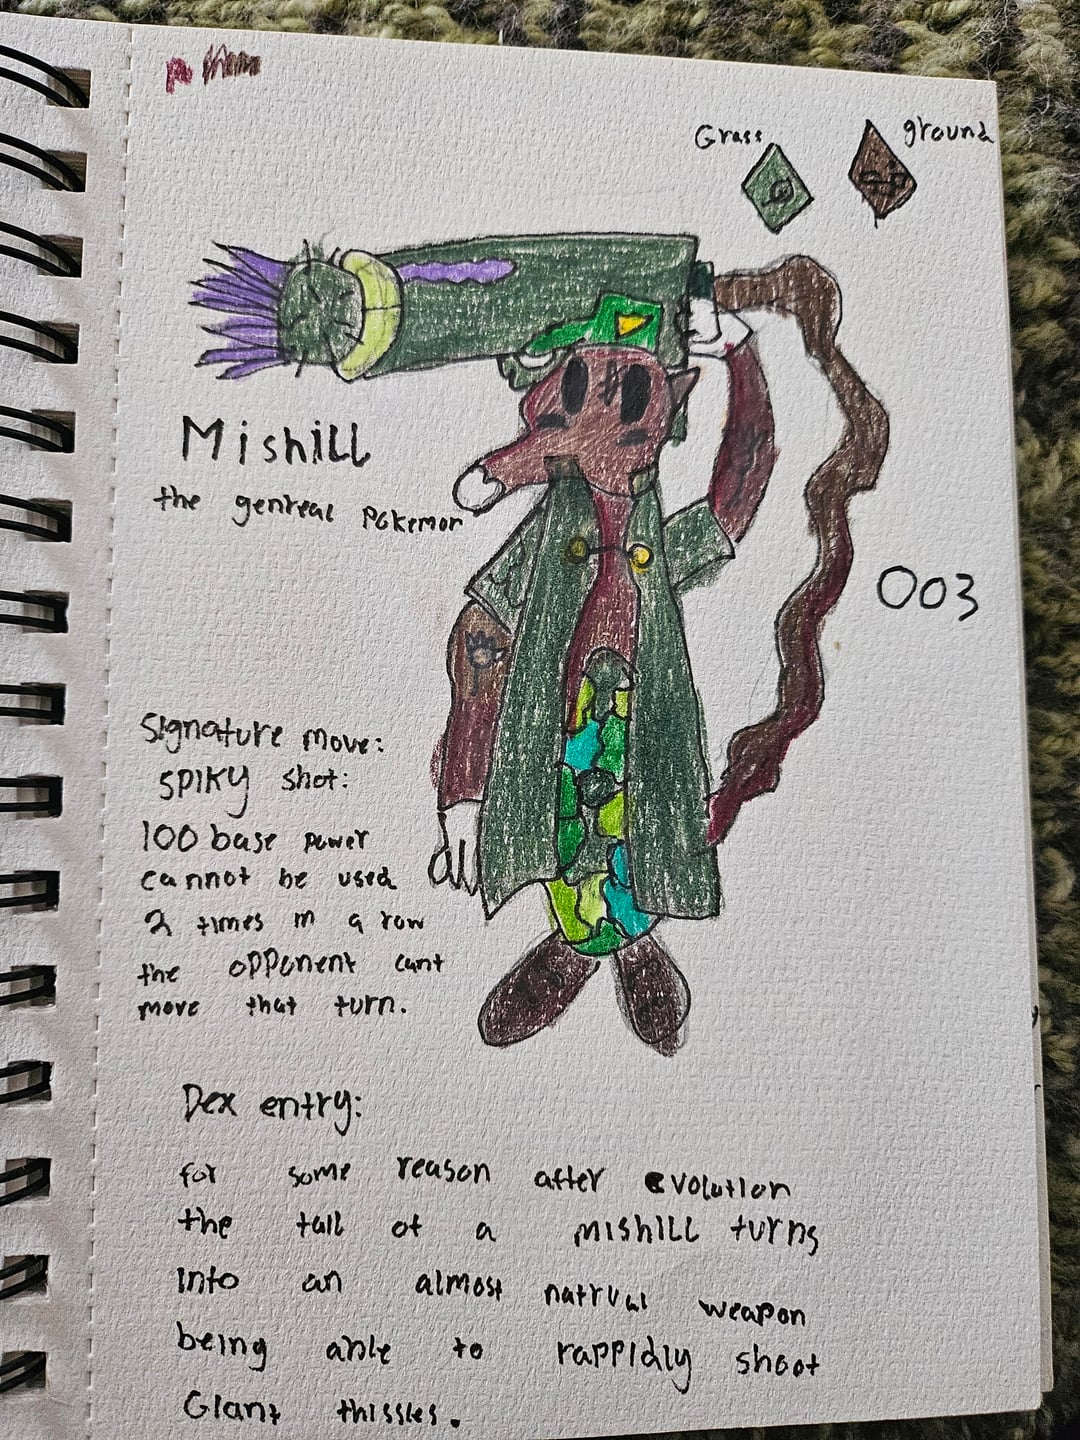 Grass ground
Mishill
the genreal pokemon
003
signature move:
SPIKY shot:
100 base power
cannot be used
2 times in a row
the opponent cant
move that turn.
Dex entry:
for some reason after evolution
the tail of a mishill turns
into an almost natrual weapon
being able to rappidly shoot
Giant thissles.